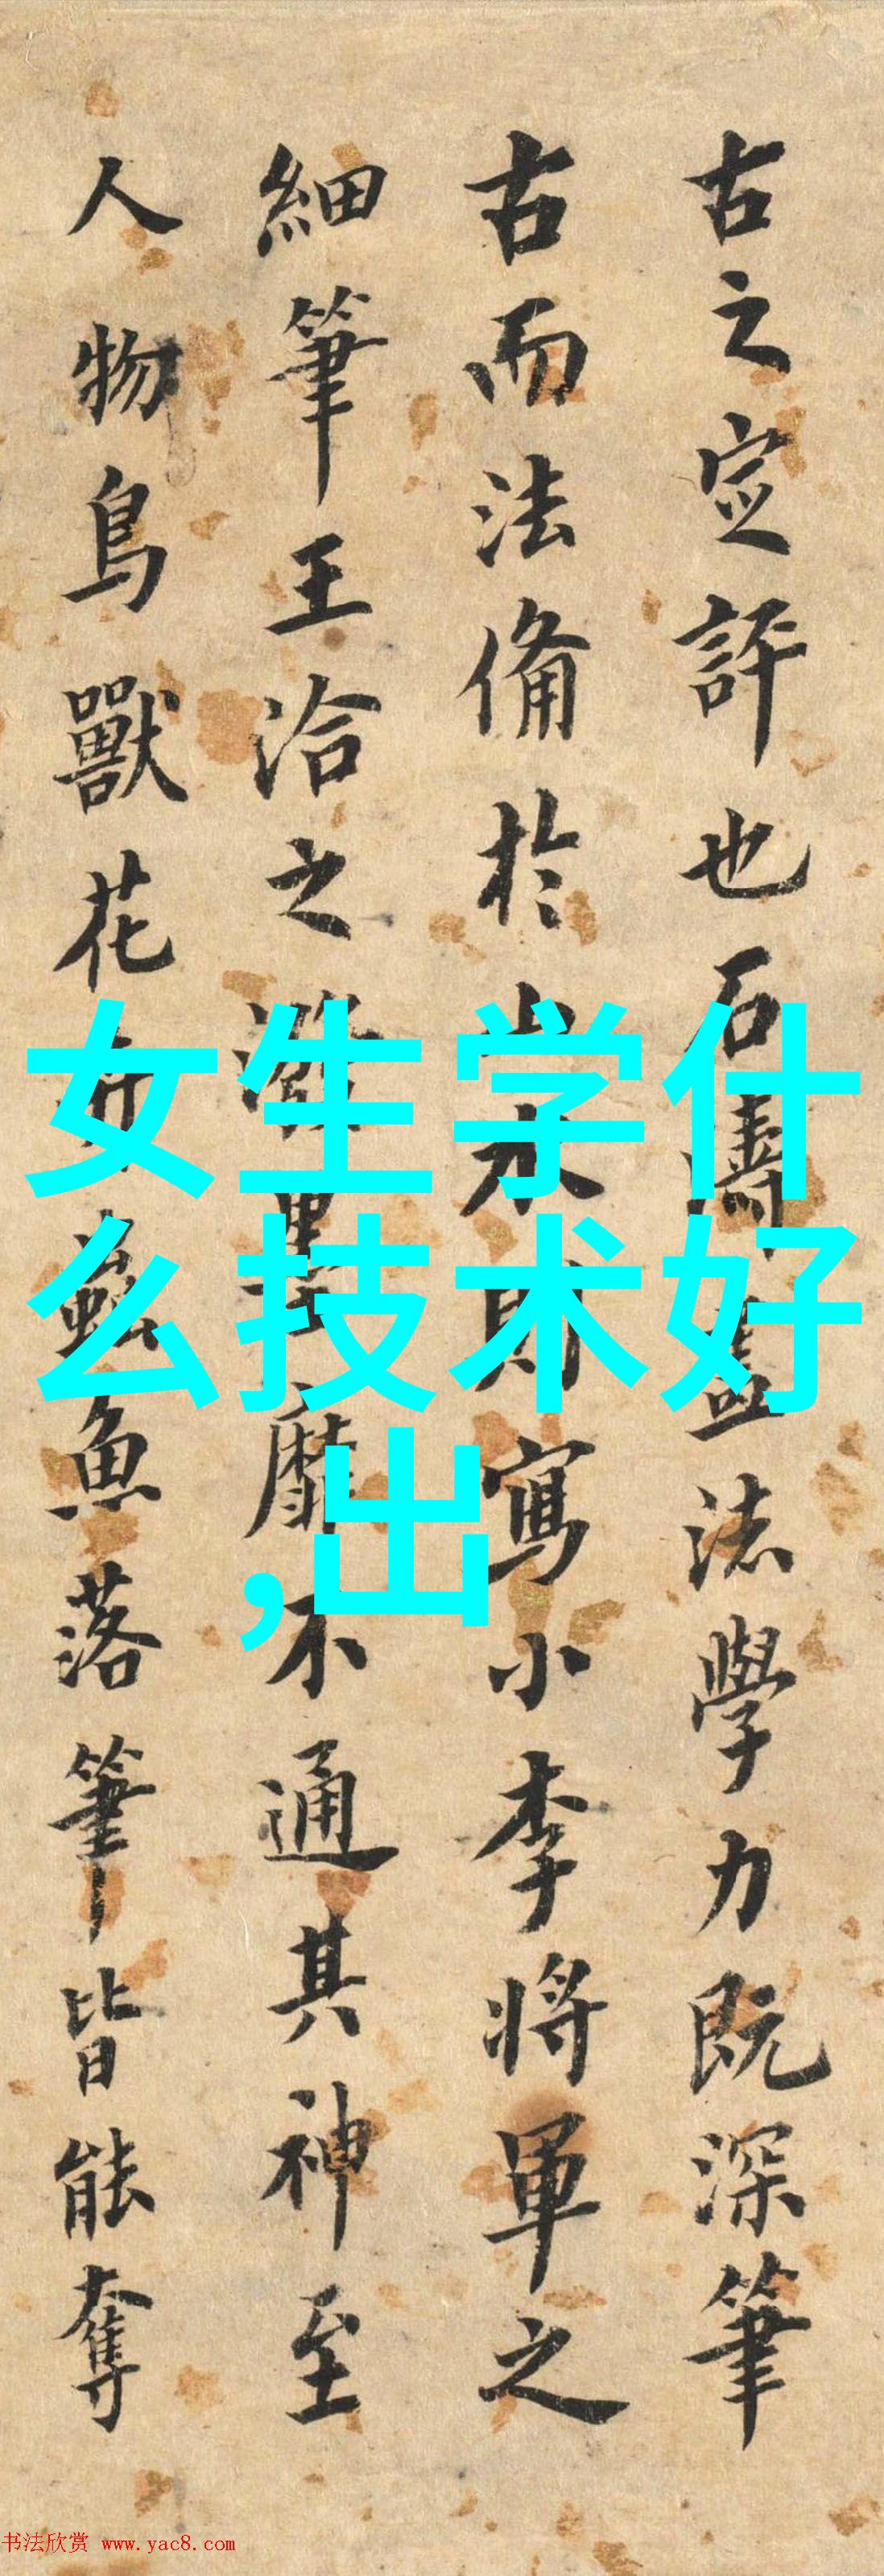 古之定評也石濤畫法學力既深筆
古而法備於山水則寫小李將軍之
細筆王洽之潑墨靡不通其神至
人物鳥獸花卉蟲魚落筆皆能奪
女生学什
么技术好
,出
书法欣赏 www.yac8.com